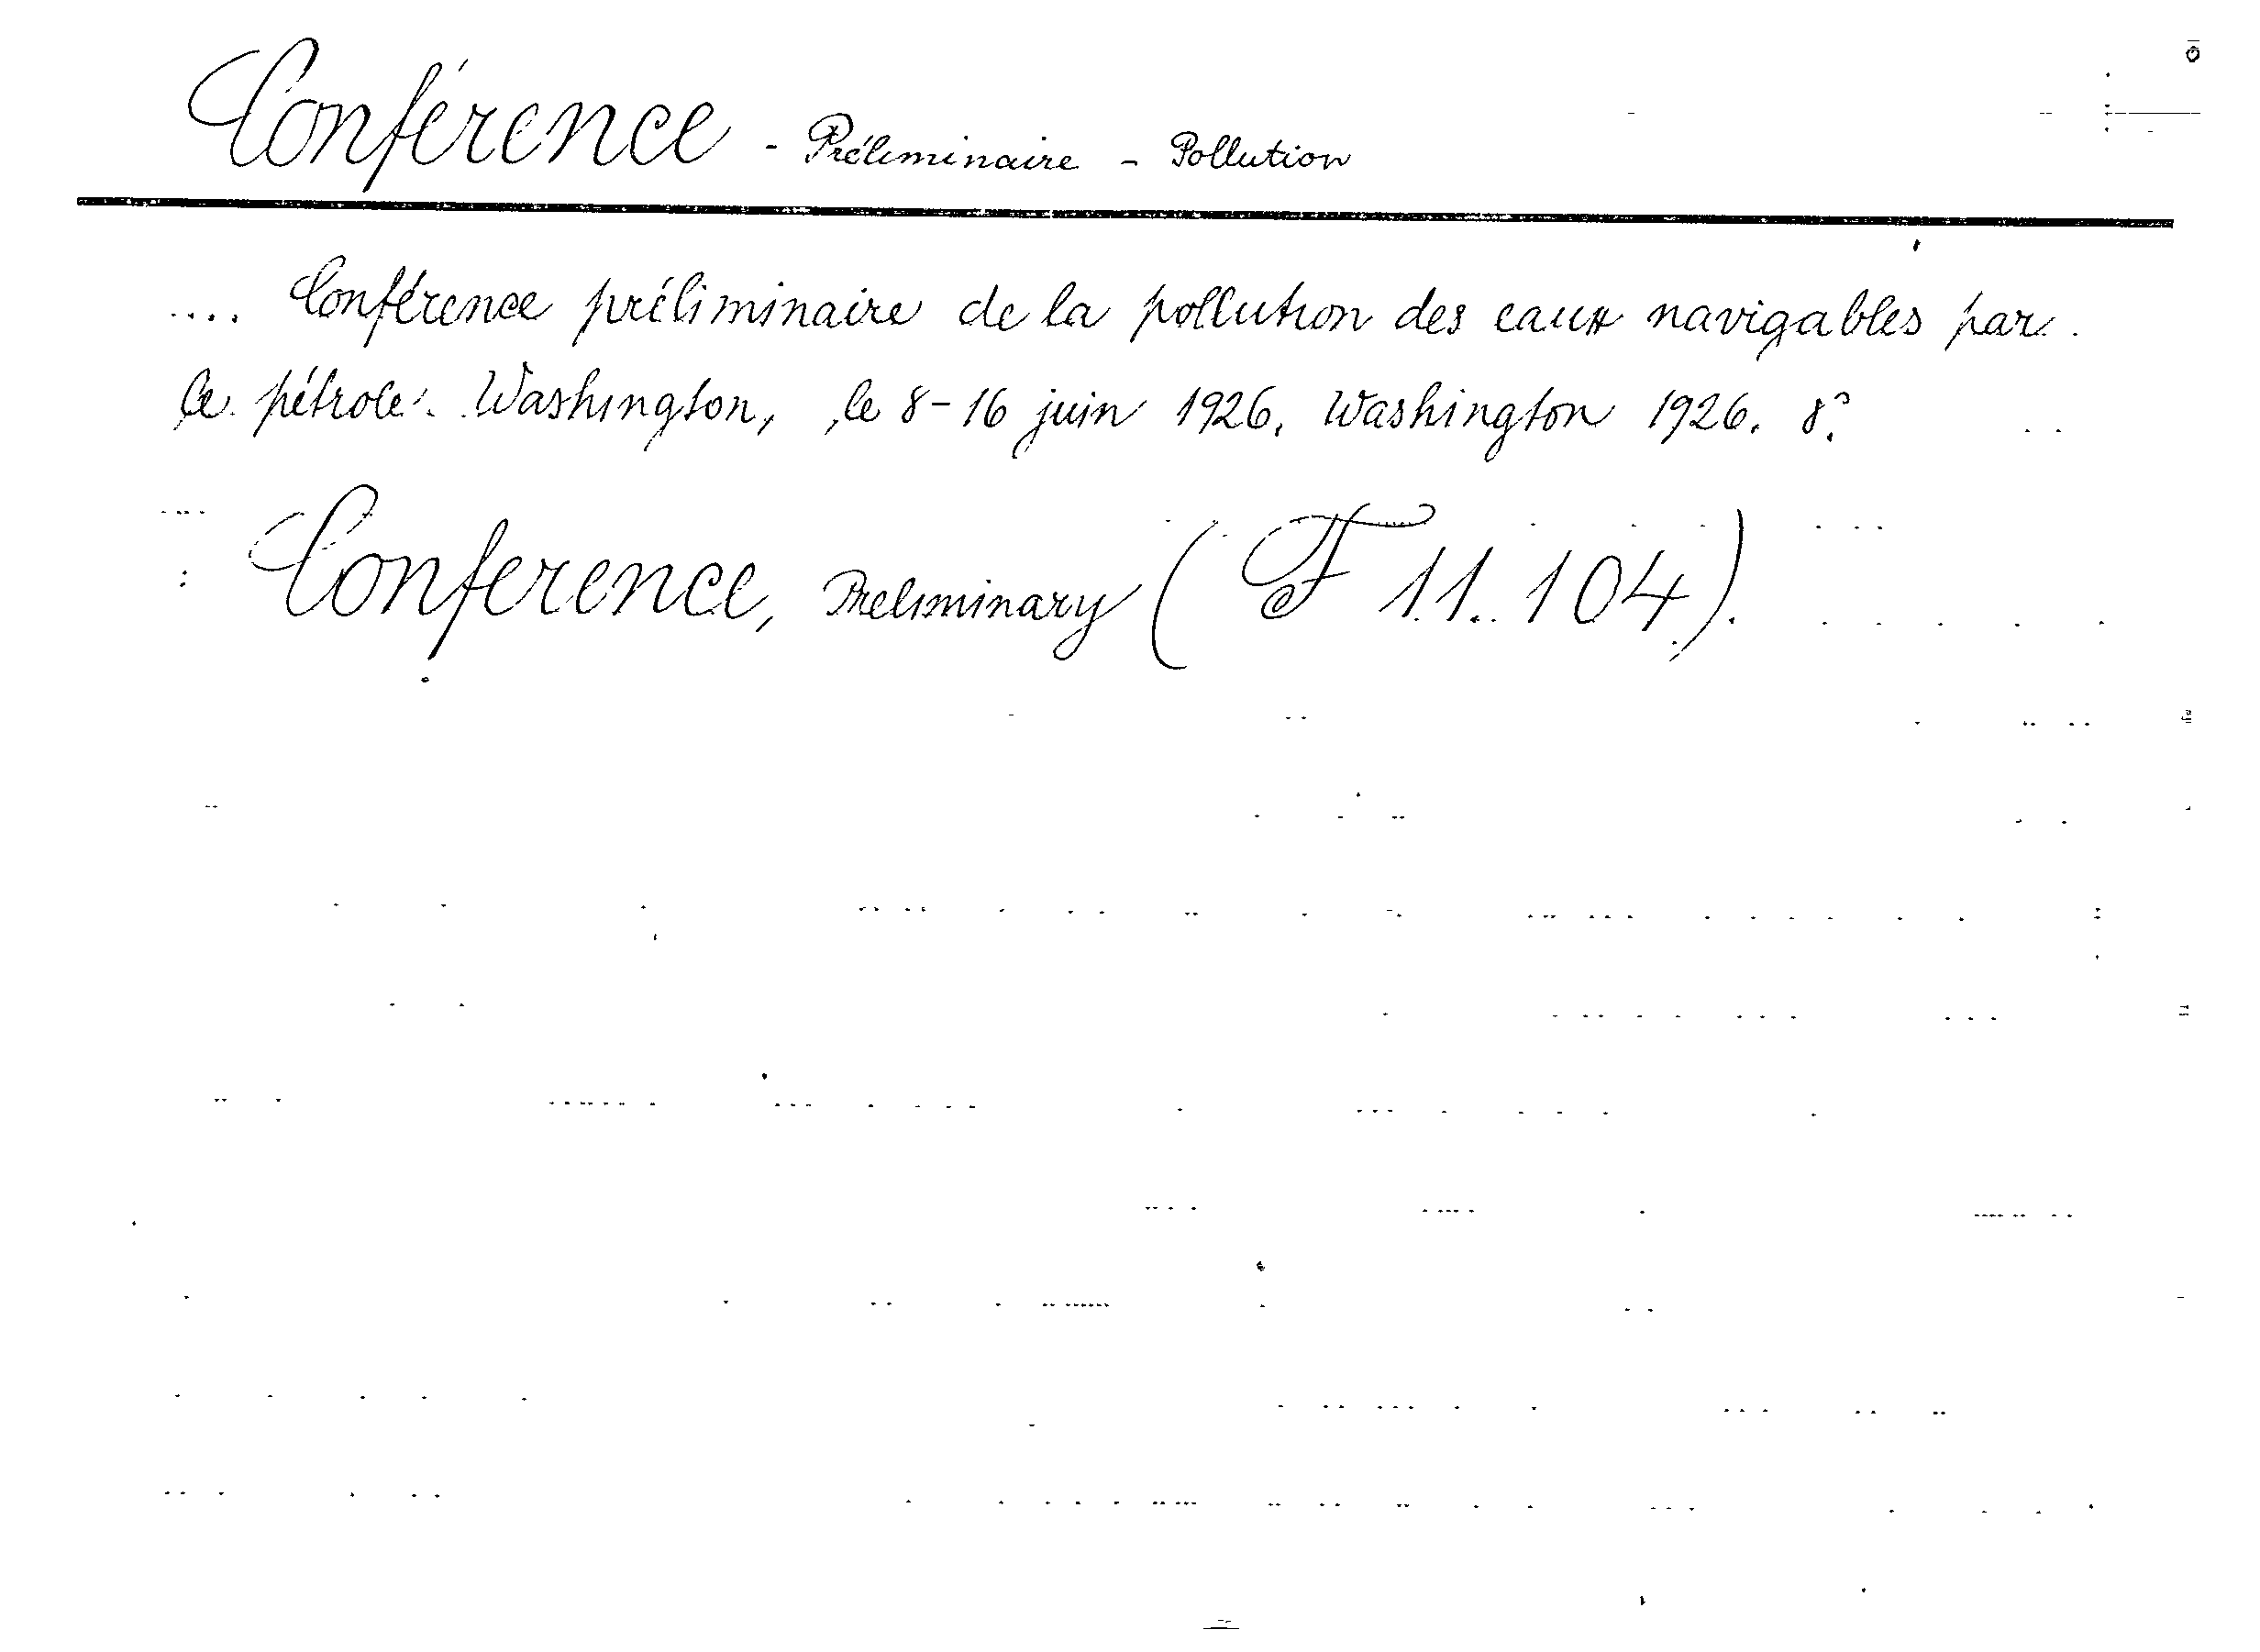 Conférence - Préliminaire - Pollution
.... Conférence préliminaire de la pollution des eaux navigables par
le pétrole. Washington, le 8-16 juin 1926. Washington 1926. 8º.
Conference, Preliminary (F 11. 104).